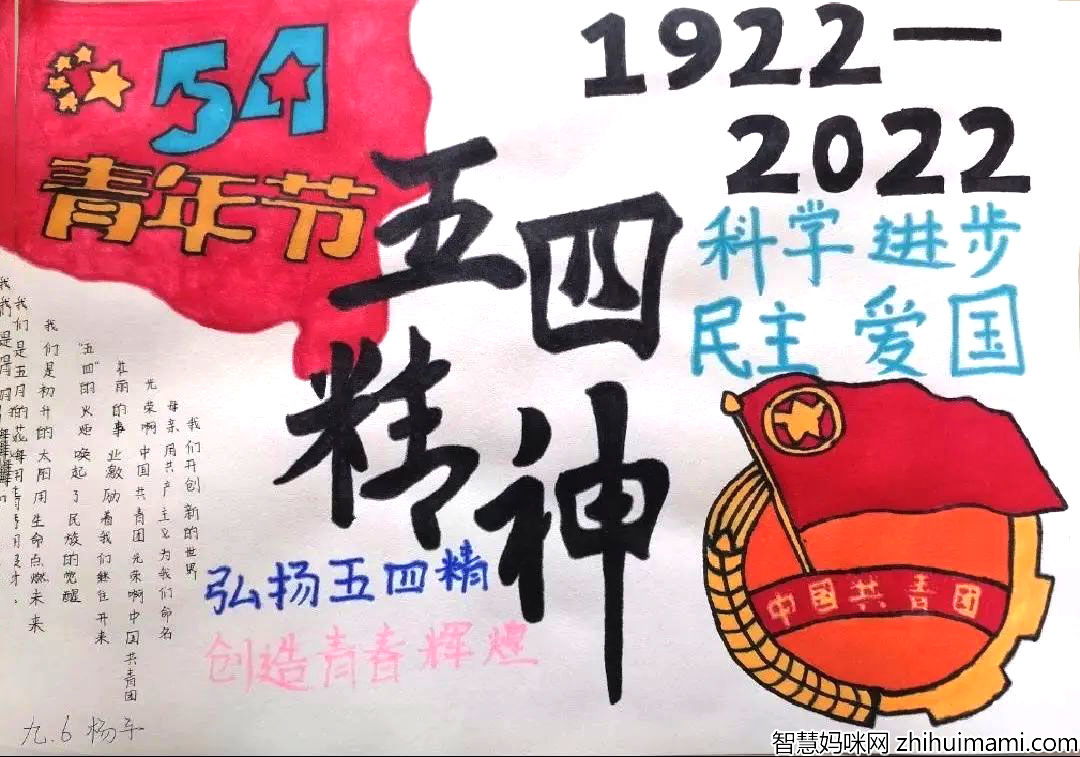 54
青年节
1922—
2022
五四
精神
科学 进步
民主 爱国
中国共青团
弘扬五四精
创造青春辉煌
我们是初升的太阳用生命点燃未来
"五四"的火炬唤起了民族的觉醒
壮丽的事业激励着我们继往开来
光荣啊中国共青团光荣啊中国共青团
母亲用共产主义为我们命名
我们开创新的世界
九.6 杨
智慧妈咪网 zhihuimami.com